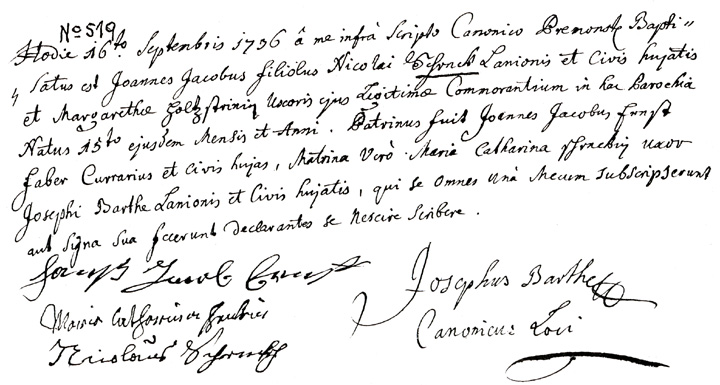 No 519
Hodie 16to Septembris 1736 â me infrà Scripto Canonico Premonstr Bapti〃
〃satus est Joannes Jacobus filiolus Nicolai Schynck Lanionis et Civis hujatis
et Margarethæ Uxoris ejus Legitimæ Commorantium in hac Parochia
Natus 15to ejusdem Mensis et Anni. Patrinus fuit Joannes Jacobus Ernst
faber Currarius et civis hujas, Matrina Verò Maria Catharina uxor
Josephi Barthe Lanionis et Civis hujatis, qui se omnes Unà Mecum Subscripserunt
aut Signa Sua fecerunt Declarantes se Nescire Scribere.
Jacob Ernst
Maria Catharina
Nicolaus
Josephus Barthe
Canonicus Loci